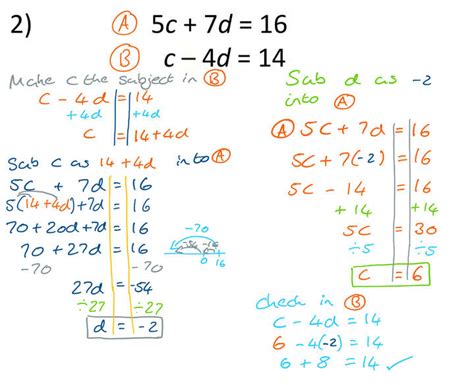 2) Ⓐ 5c + 7d = 16
Ⓑ c – 4d = 14
Make c the subject in Ⓑ
c - 4d = 14
+4d +4d
c = 14+4d
Sub c as 14+4d into Ⓐ
5c + 7d = 16
5(14+4d)+7d = 16
70+20d+7d = 16
70 + 27d = 16
-70 -70
27d = -54
÷27 ÷27
d = -2
-70
-54 -16
0 16
Sub d as -2
into Ⓐ
Ⓐ 5c + 7d = 16
5c + 7(-2) = 16
5c - 14 = 16
+14 +14
5c = 30
÷5 ÷5
c = 6
check in Ⓑ
c - 4d = 14
6 - 4(-2) = 14
6 + 8 = 14 ✓